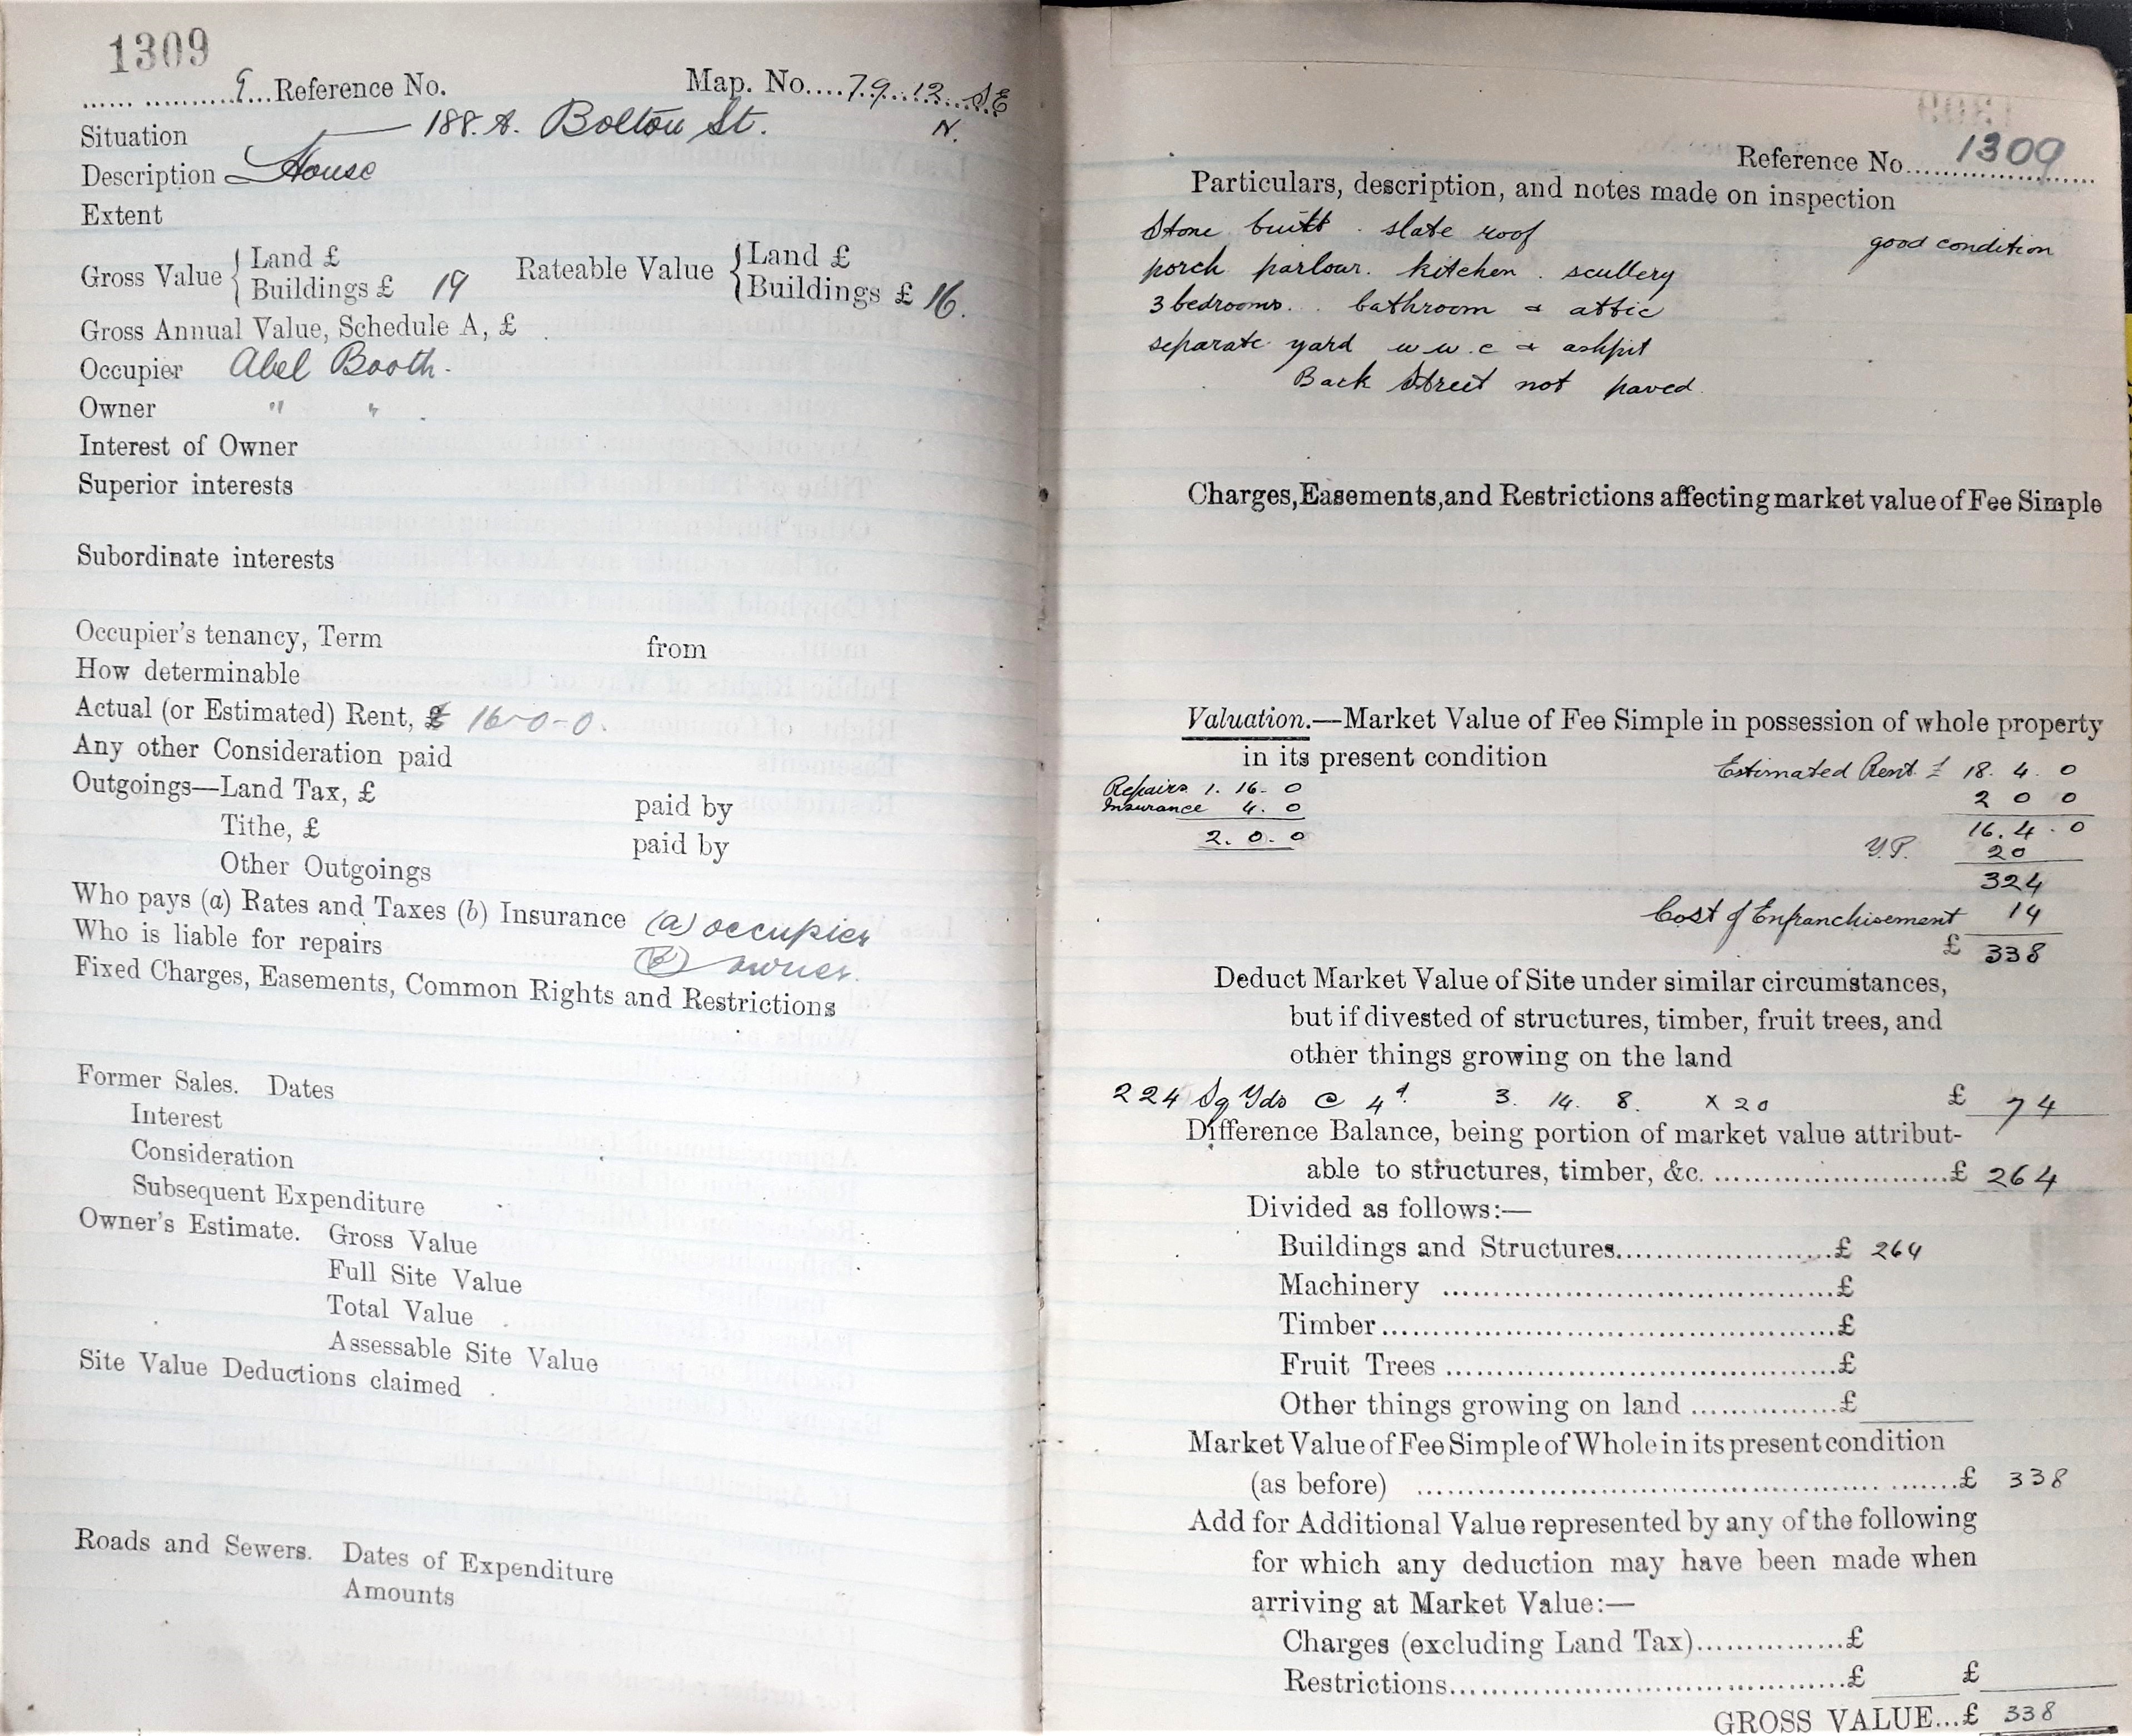 1309
9 Reference No. Map. No. 79.12. SE
N.
Situation 188.A. Bolton St.
Description House
Extent
Gross Value { Land £ Rateable Value { Land £
Buildings £ 19 Buildings £ 16.
Gross Annual Value, Schedule A, £
Occupier Abel Booth.
Owner " "
Interest of Owner
Superior interests
Subordinate interests
Occupier's tenancy, Term from
How determinable
Actual (or Estimated) Rent, £ 16-0-0.
Any other Consideration paid
Outgoings—Land Tax, £ paid by
Tithe, £ paid by
Other Outgoings
Who pays (a) Rates and Taxes (b) Insurance (a) occupier
Who is liable for repairs (b) owner.
Fixed Charges, Easements, Common Rights and Restrictions
Former Sales. Dates
Interest
Consideration
Subsequent Expenditure
Owner's Estimate. Gross Value
Full Site Value
Total Value
Assessable Site Value
Site Value Deductions claimed
Roads and Sewers. Dates of Expenditure
Amounts
Reference No. 1309
Particulars, description, and notes made on inspection
Stone built. slate roof good condition
porch parlour. kitchen. scullery
3 bedrooms.. bathroom & attic
separate yard w w.c & ashpit
Back Street not paved.
Charges, Easements, and Restrictions affecting market value of Fee Simple
Valuation.—Market Value of Fee Simple in possession of whole property
in its present condition Estimated Rent £ 18. 4. 0
Repairs 1. 16. 0 2 0 0
Insurance 4. 0 16. 4. 0
2. 0. 0 Y.P. 20
324
Cost of Enfranchisement 14
£ 338
Deduct Market Value of Site under similar circumstances,
but if divested of structures, timber, fruit trees, and
other things growing on the land
224 Sq Yds @ 4d. 3. 14. 8. x 20 £ 74
Difference Balance, being portion of market value attribut-
able to structures, timber, &c. £ 264
Divided as follows:—
Buildings and Structures £ 264
Machinery £
Timber £
Fruit Trees £
Other things growing on land £
Market Value of Fee Simple of Whole in its present condition
(as before) £ 338
Add for Additional Value represented by any of the following
for which any deduction may have been made when
arriving at Market Value:—
Charges (excluding Land Tax) £
Restrictions £ £
GROSS VALUE...£ 338